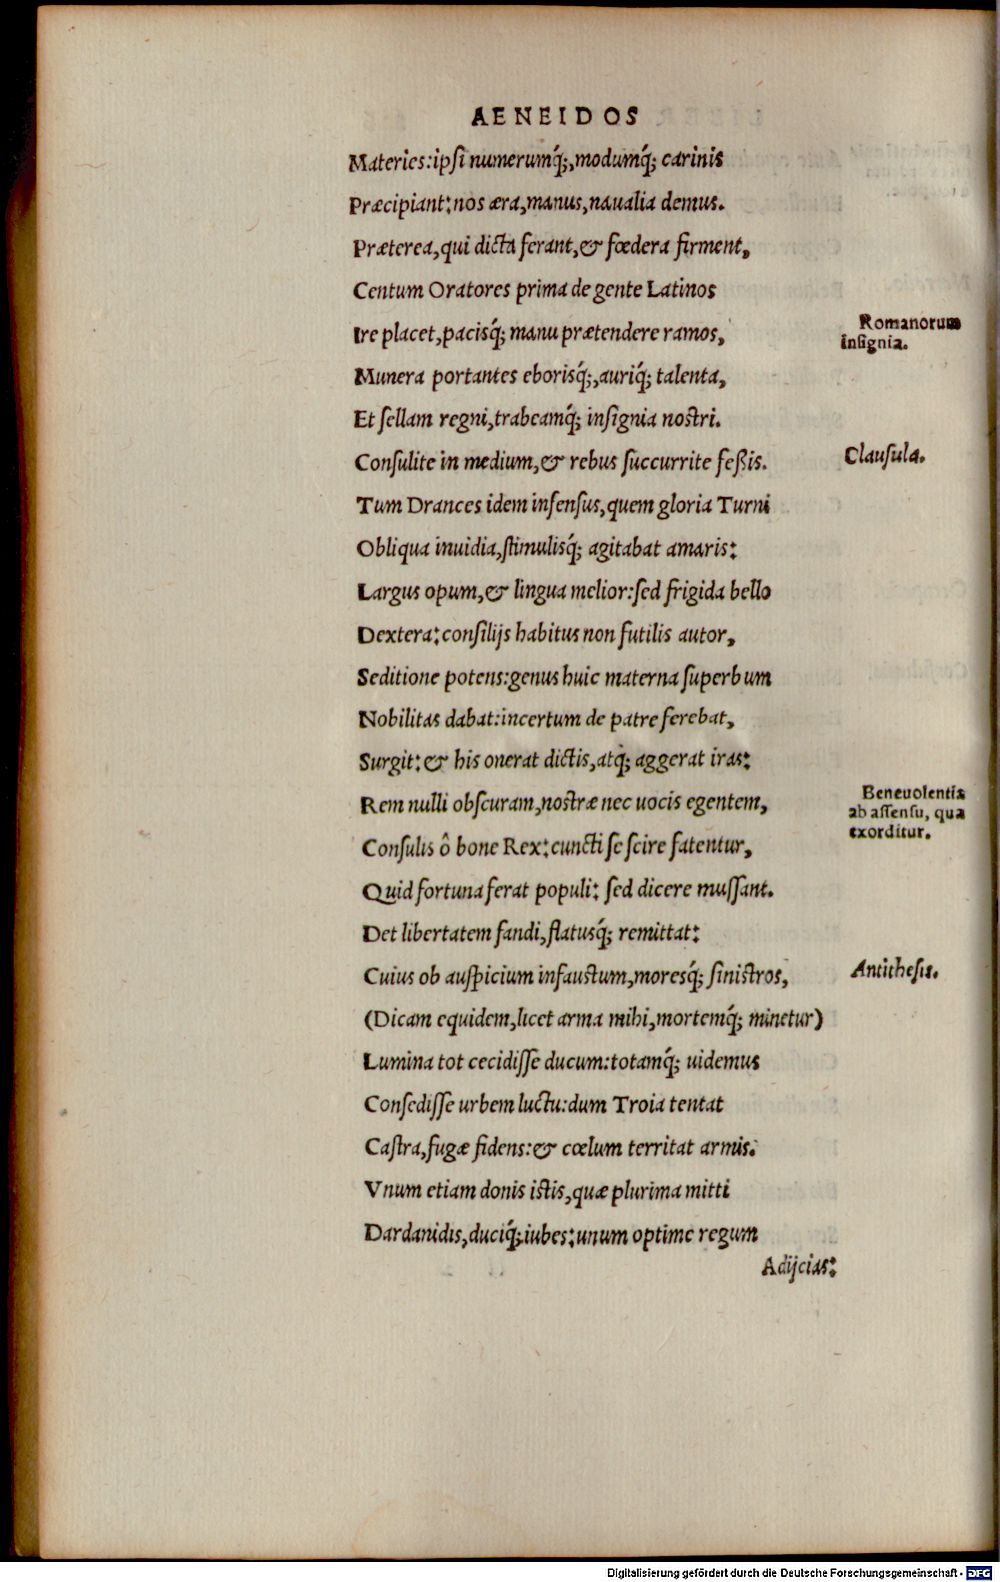 AENEIDOS
Materies:ipſi numerumq́;,modumq́; carinis
Præcipiant: nos æra,manus,naualia demus.
Præterea,qui dicta ferant,& fœdera firment,
Centum Oratores prima de gente Latinos
Ire placet,pacisq́; manu prætendere ramos,
Romanorum
inſignia.
Munera portantes eborisq́;,auriq́; talenta,
Et ſellam regni,trabeamq́; inſignia noſtri.
Conſulite in medium,& rebus ſuccurrite feßis.
Clauſula.
Tum Drances idem infenſus,quem gloria Turni
Obliqua inuidia,ſtimulisq́; agitabat amaris:
Largus opum,& lingua melior:ſed frigida bello
Dextera: conſilijs habitus non futilis autor,
Seditione potens:genus huic materna ſuperbum
Nobilitas dabat:incertum de patre ferebat,
Surgit: & his onerat dictis,atq; aggerat iras:
Rem nulli obſcuram,noſtræ nec uocis egentem,
Beneuolentia
ab aſſenſu, qua
exorditur.
Conſulis ô bone Rex: cuncti ſe ſcire fatentur,
Quid fortuna ferat populi: ſed dicere muſſant.
Det libertatem fandi,flatusq́; remittat:
Cuius ob auſpicium infauſtum,moresq́; ſiniſtros,
Antitheſis.
(Dicam equidem,licet arma mihi,mortemq́; minetur)
Lumina tot cecidiſſe ducum:totamq́; uidemus
Conſediſſe urbem luctu:dum Troia tentat
Caſtra,fugæ fidens:& cœlum territat armis.
Vnum etiam donis iſtis,quæ plurima mitti
Dardanidis,duciq́;iubes:unum optime regum
Adijcias:
Digitalisierung gefördert durch die Deutsche Forschungsgemeinschaft - DFG